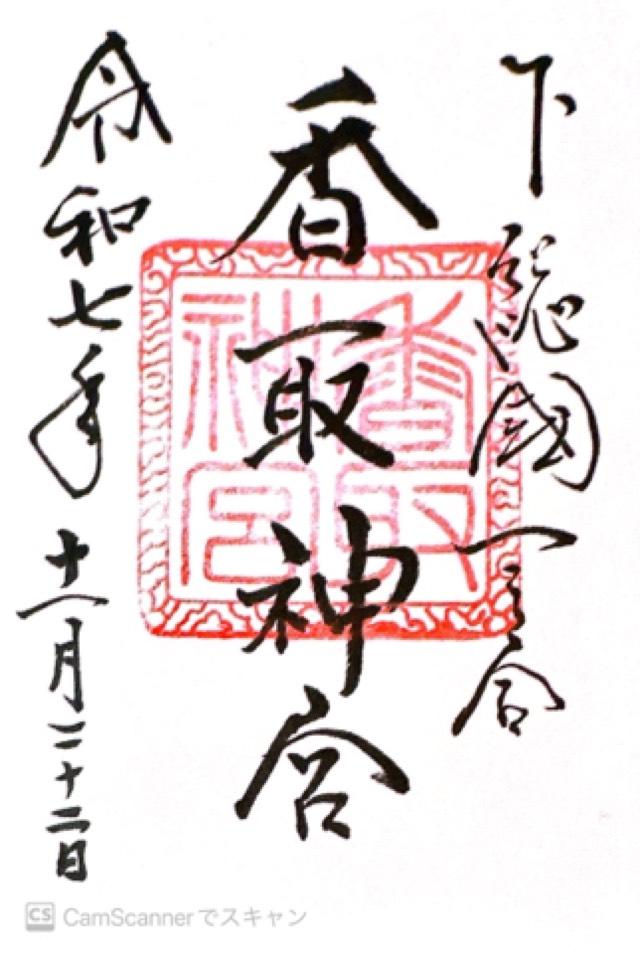 下総國一之宮
香取神宮
令和七年十一月二十二日
香取神宮
CS CamScannerでスキャン